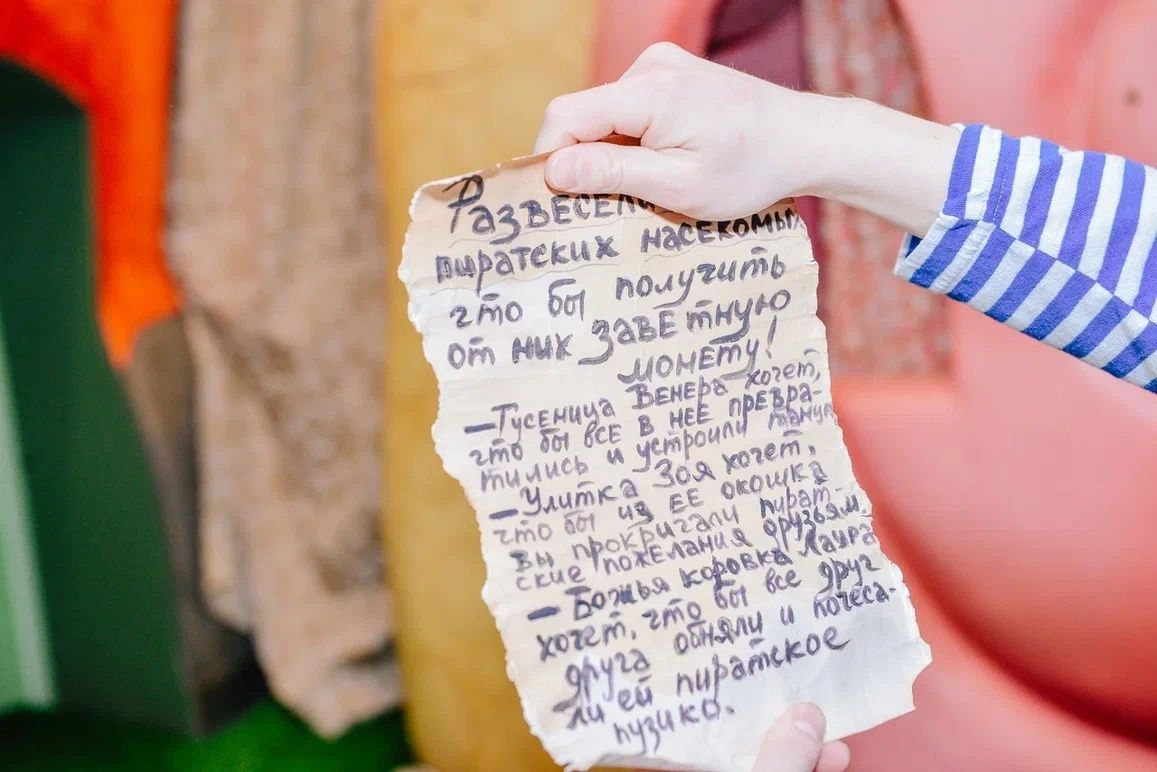 Развесели
пиратских насекомых
что бы получить
от них заветную
монету!
– Гусеница Венера хочет,
что бы все в нее превра-
тились и устроили танцы
– Улитка Зоя хочет,
что бы из ее окошка
вы прокричали пират-
ские пожелания друзьям.
– Божья коровка Лаура
хочет, что бы все друг
друга обняли и почеса-
ли ей пиратское
пузико.